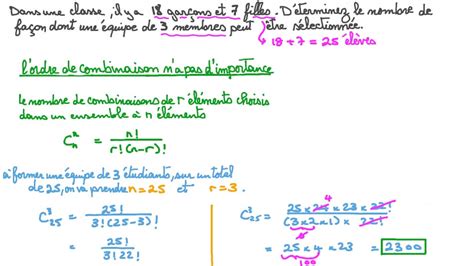 Dans une classe, il y a 18 garçons et 7 filles. Déterminez le nombre de
façon dont une équipe de 3 membres peut être sélectionnée.
18 + 7 = 25 élèves
l'ordre de combinaison n'a pas d'importance
le nombre de combinaisons de r éléments choisis
dans un ensemble à n éléments
C^r_n = n! / r!(n-r)!
à former une équipe de 3 étudiants, sur un total
de 25, on va prendre n = 25 et r = 3.
C^3_25 = 25! / 3!(25-3)!
= 25! / 3! 22!
C^3_25 = 25 x 24 x 23 x 22! / (3 x 2 x 1) x 22!
4
= 25 x 4 x 23 = 2300
100